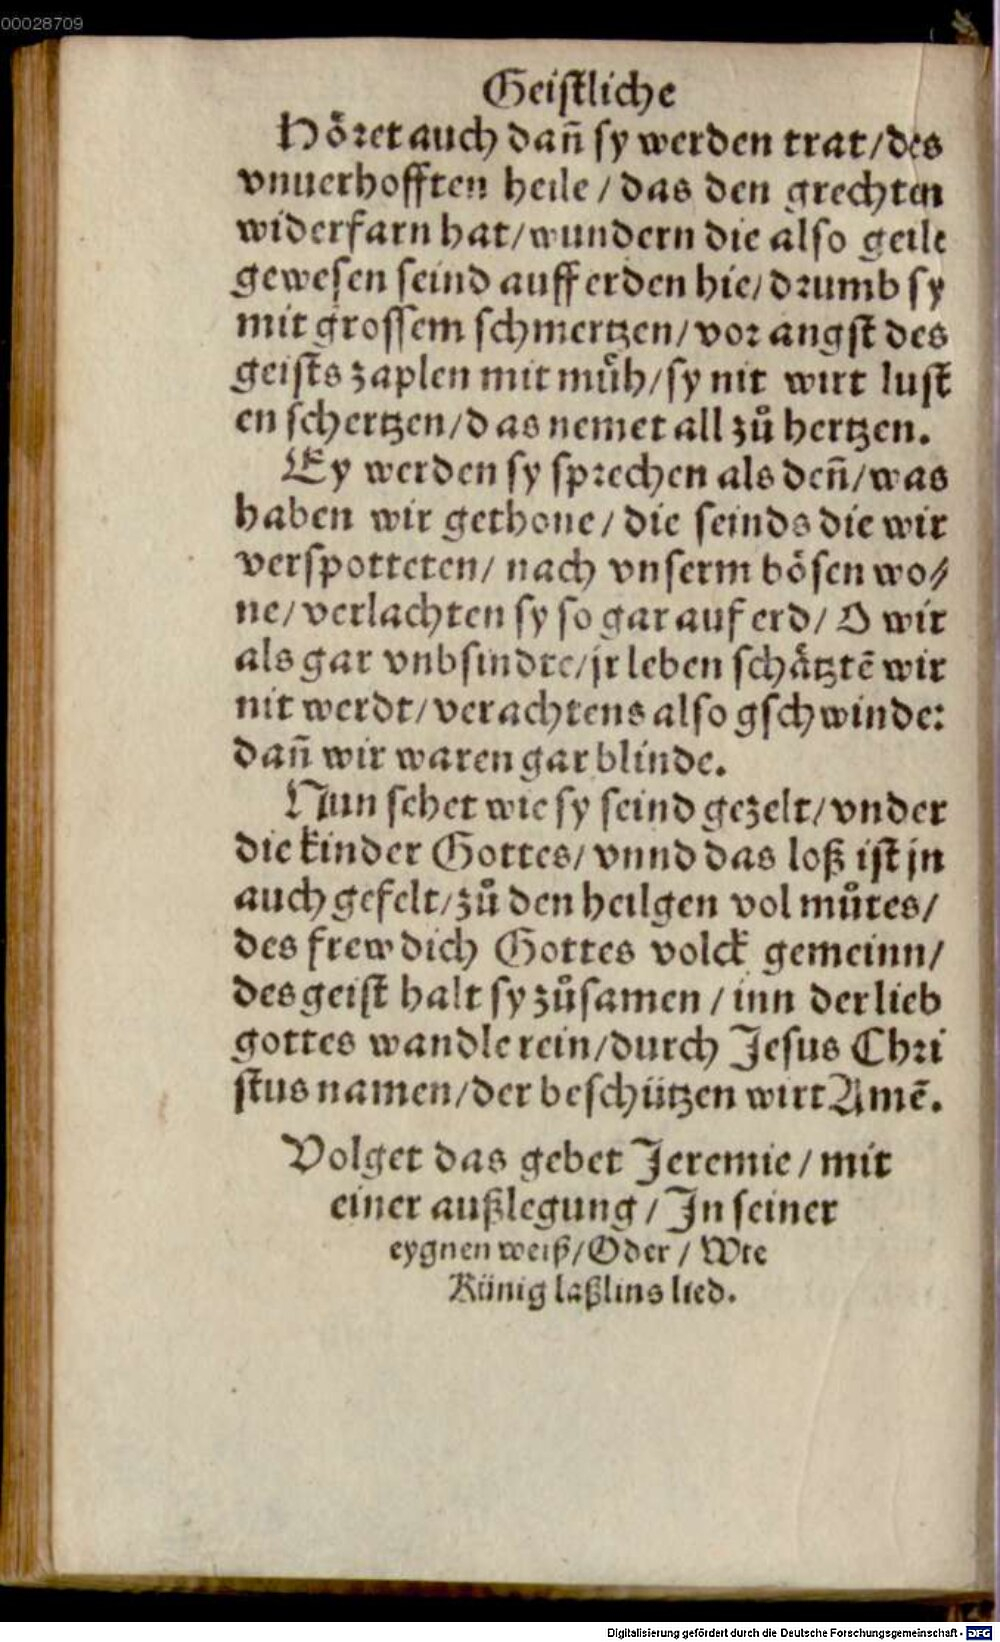 00028709
Geistliche
Höret auch dañ sy werden trat/des
vnuerhofften heile/das den grechten
widerfarn hat/wundern die also geile
gewesen seind auff erden hie/drumb sy
mit grossem schmertzen/vor angst des
geists zaplen mit muͤh/sy nit wirt lust
en schertzen/das nemet all zů hertzen.
Ey werden sy sprechen als deñ/was
haben wir gethone/die seinds die wir
verspotteten/nach vnserm bösen wo⸗
ne/verlachten sy so gar auf erd/O wir
als gar vnbsindte/jr leben schätztē wir
nit werdt/verachtens also gschwinde:
dañ wir waren gar blinde.
Nun sehet wie sy seind gezelt/vnder
die kinder Gottes/vnnd das loß ist jn
auch gefelt/zů den heilgen vol můtes/
des frew dich Gottes volck gemeinn/
des geist halt sy zůsamen/inn der lieb
gottes wandle rein/durch Jesus Chri
stus namen/der beschützen wirt Amē.
Volget das gebet Jeremie/mit
einer außlegung/In seiner
eygnen weiß/Oder/Wie
Künig laßlins lied.
Digitalisierung gefördert durch die Deutsche Forschungsgemeinschaft - DFG